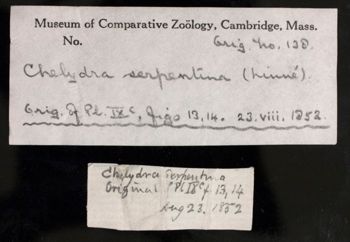 Museum of Comparative Zoölogy, Cambridge, Mass.
No. Orig. No. 128.
Chelydra serpentina (Linné).
Orig. of Pl. IXc, figs 13, 14. 23. viii. 1852.
Chelydra serpentina
Original Pl IXc f 13, 14
Aug 23. 1852